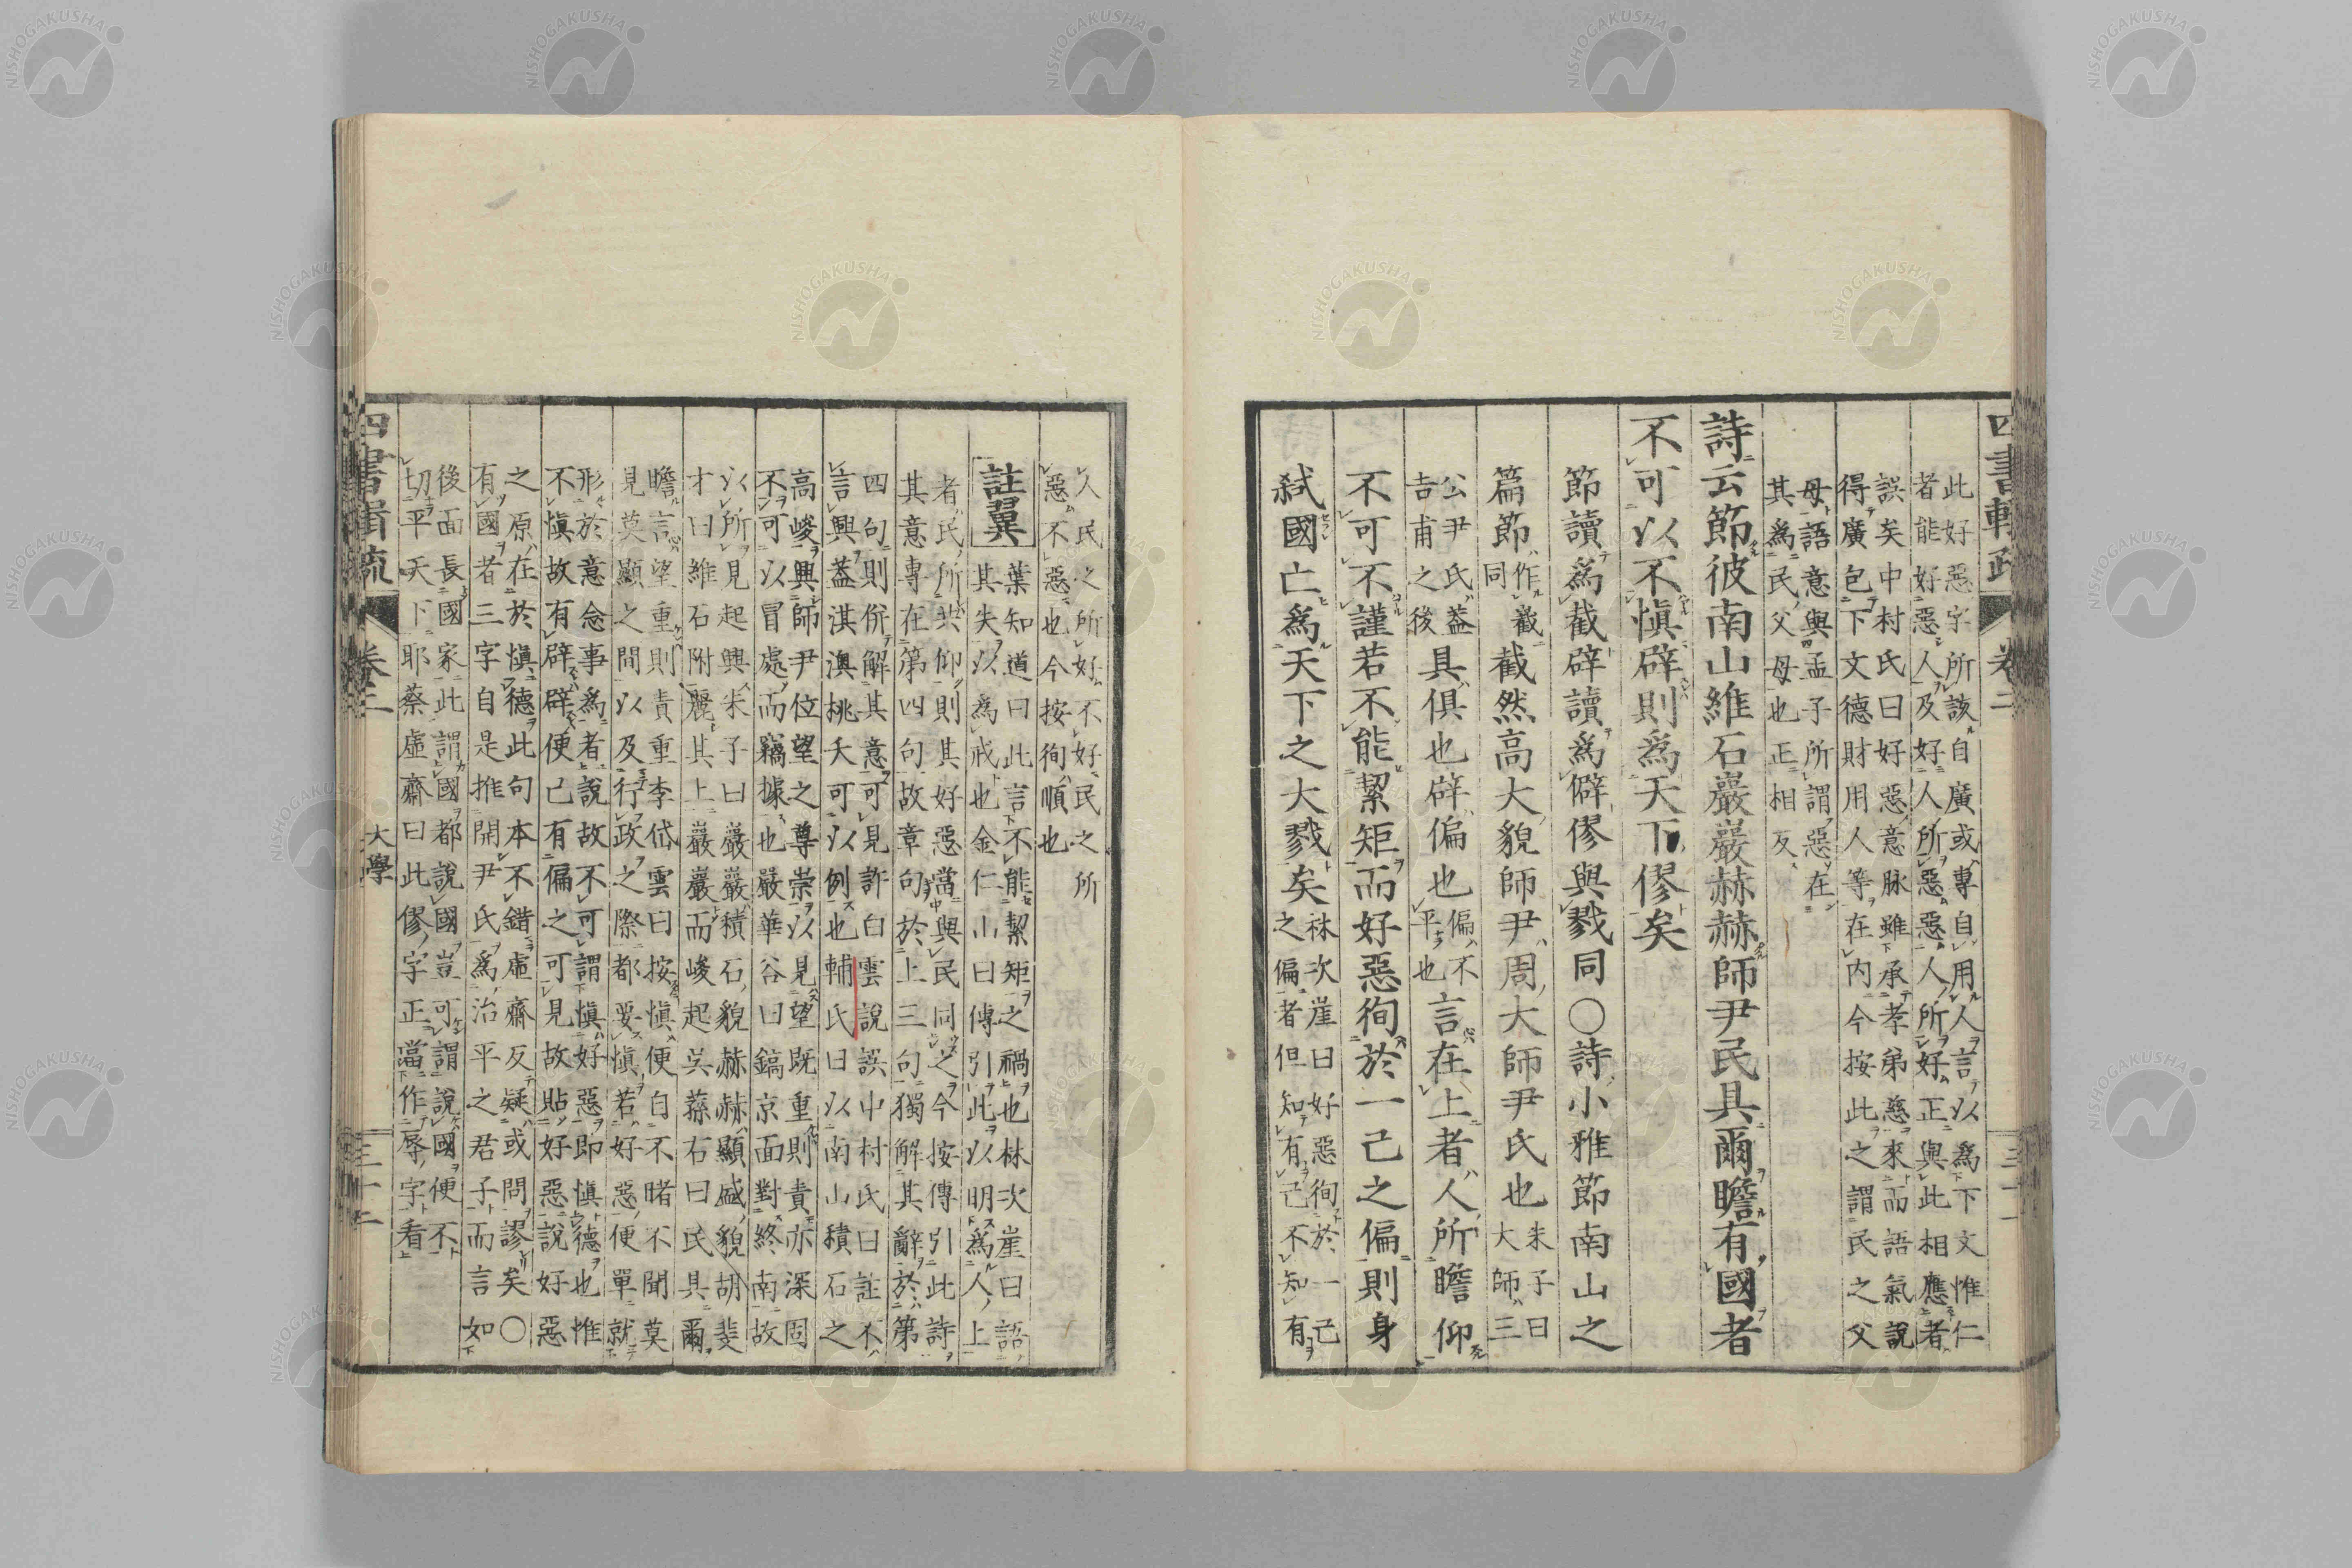 四書輯疏 卷二 三十一
此好惡字所該自廣或專自用人言以爲下文惟仁
者能好惡人及好人所惡惡人所好正與此相應者
誤矣中村氏曰好惡意脉雖承孝弟慈來而語氣說
得廣包下文德財用人等在内今按此之謂民之父
母語意與孟子所謂惡在
其爲民父母也正相反
詩云節彼南山維石巖巖赫赫師尹民具爾瞻有國者
不可以不愼辟則爲天下僇矣
節讀爲截辟讀爲僻僇與戮同〇詩小雅節南山之
篇節作截同截然高大貌師尹周大師尹氏也朱子曰大師三
公尹氏蓋吉甫之後具俱也辟偏也偏不平也言在上者人所瞻仰
不可不謹若不能絜矩而好惡徇於一己之偏則身
弑國亡爲天下之大戮矣林次崖曰好惡徇於一己之偏者但知有己不知有
人民之所好不好民之所
惡不惡也今按徇順也
註翼 葉知道曰此言不能絜矩之禍也林次崖曰語
其失以爲戒也金仁山曰傳引此以明爲人上
者民所共仰則其好惡當與民同之今按傳引此詩
其意專在第四句故章句於上三句獨解其辭於第
四句則併解其意可見許白雲說誤中村氏曰註不
言興蓋淇澳桃夭可以例也輔氏曰以南山積石之
高峻興師尹位望之尊崇以見望既重則責亦深固
不可以冒處而竊據也嚴華谷曰鎬京面對終南故
以所見起興朱子曰巖巖積石貌赫赫顯盛貌胡斐
才曰維石附麗其上巖巖而峻起吳蓀石曰民具爾
瞻言望重則責重李岱雲曰按愼便自不睹不聞莫
見莫顯之間以及行政之際都要愼若好惡便單就
形於意念事爲者說故不可謂愼好惡即愼德也惟
不愼故有辟辟便已有偏之可見故貼好惡說好惡
之原在於愼德此句本不錯虛齋反疑或問謬矣〇
有國者三字自是推開尹氏爲治平之君子而言如
後面長國家此謂國都說國豈可謂說國便不
切平天下耶蔡虛齋曰此僇字正當作辱字看
四書輯疏 卷二 大學 三十二